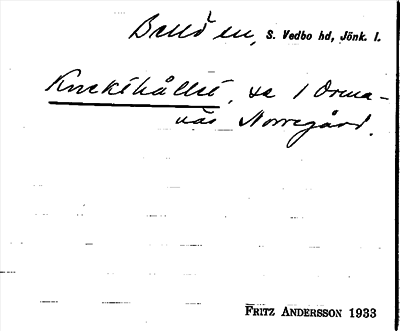 Bellö sn, S. Vedbo hd, Jönk. l.
Knekthållet, se 1 Orma-
näs Norregård.
FRITZ ANDERSSON 1933